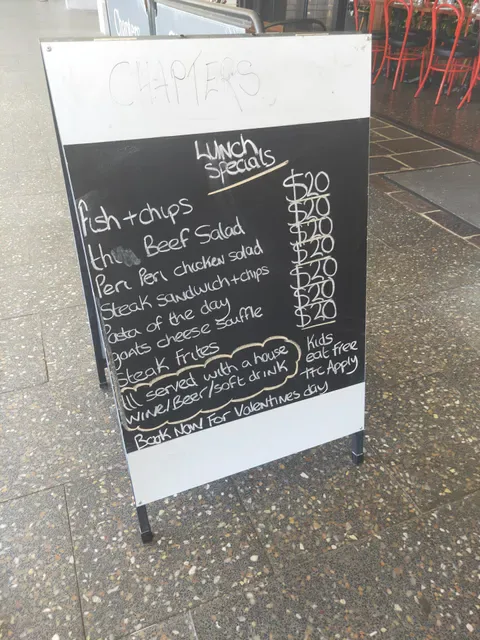 CHAPTERS
LUNCH
Specials
Fish + chips $20
Beef Salad $20
Peri Peri chicken salad $20
Steak sandwich + chips $20
Pasta of the day $20
goats cheese Souffle $20
Steak Frites $20
All served with a house
wine/Beer/soft drink
Kids
eat Free
T+C Apply
Book Now For Valentines day